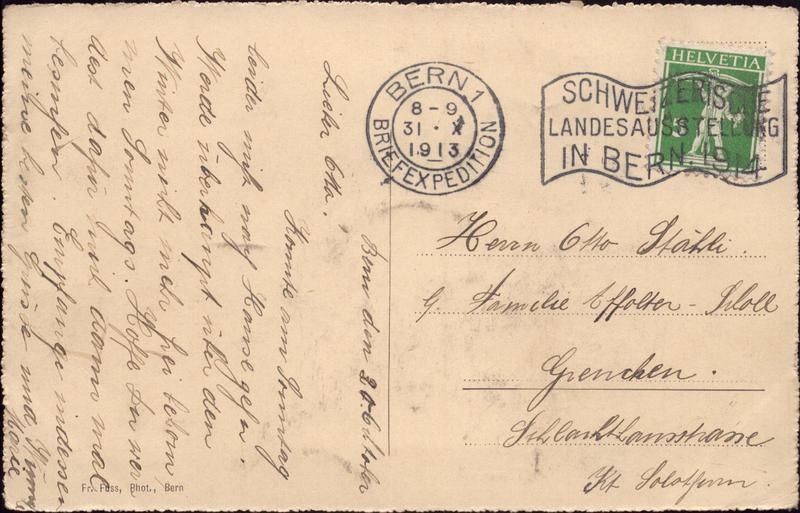 BERN 1
8-9
31. X
1913
BRIEFEXPEDITION
HELVETIA
SCHWEIZERISCHE
LANDESAUSSTELLUNG
IN BERN 1914
Herrn Otto Stähli.
Familie Affolter-
Grenchen.
Schlachthausstrasse
Kt Solothurn.
Bern den Oktober
Lieber Otto.
Konnte am Sonntag
leider nicht nach Hause gehn.
Werde überhaupt über den
Winter nicht mehr frei
men Sonntags. Hoffe Du
dest dafür und dann mal
Empfange indessen
meine besten Grüsse und
Fr. Fuss, Phot., Bern